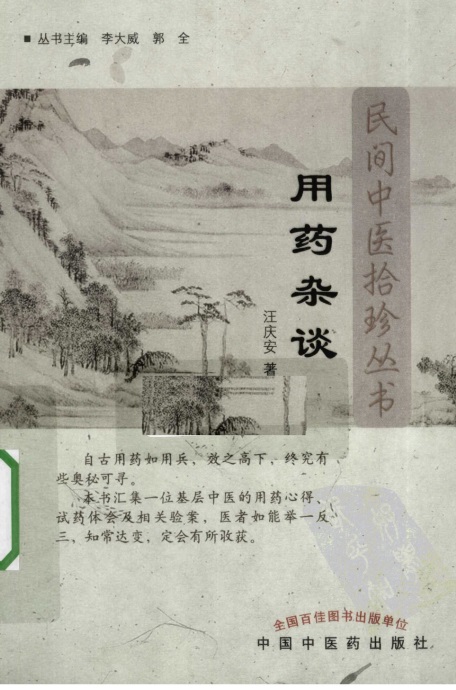 ■ 丛书主编 李大威 郭 全
民间中医拾珍丛书
用药杂谈
汪庆安 著
自古用药如用兵，效之高下，终究有
些奥秘可寻。
本书汇集一位基层中医的用药心得、
试药体会及相关验案，医者如能举一反
三，知常达变，定会有所收获。
全国百佳图书出版单位
中国中医药出版社